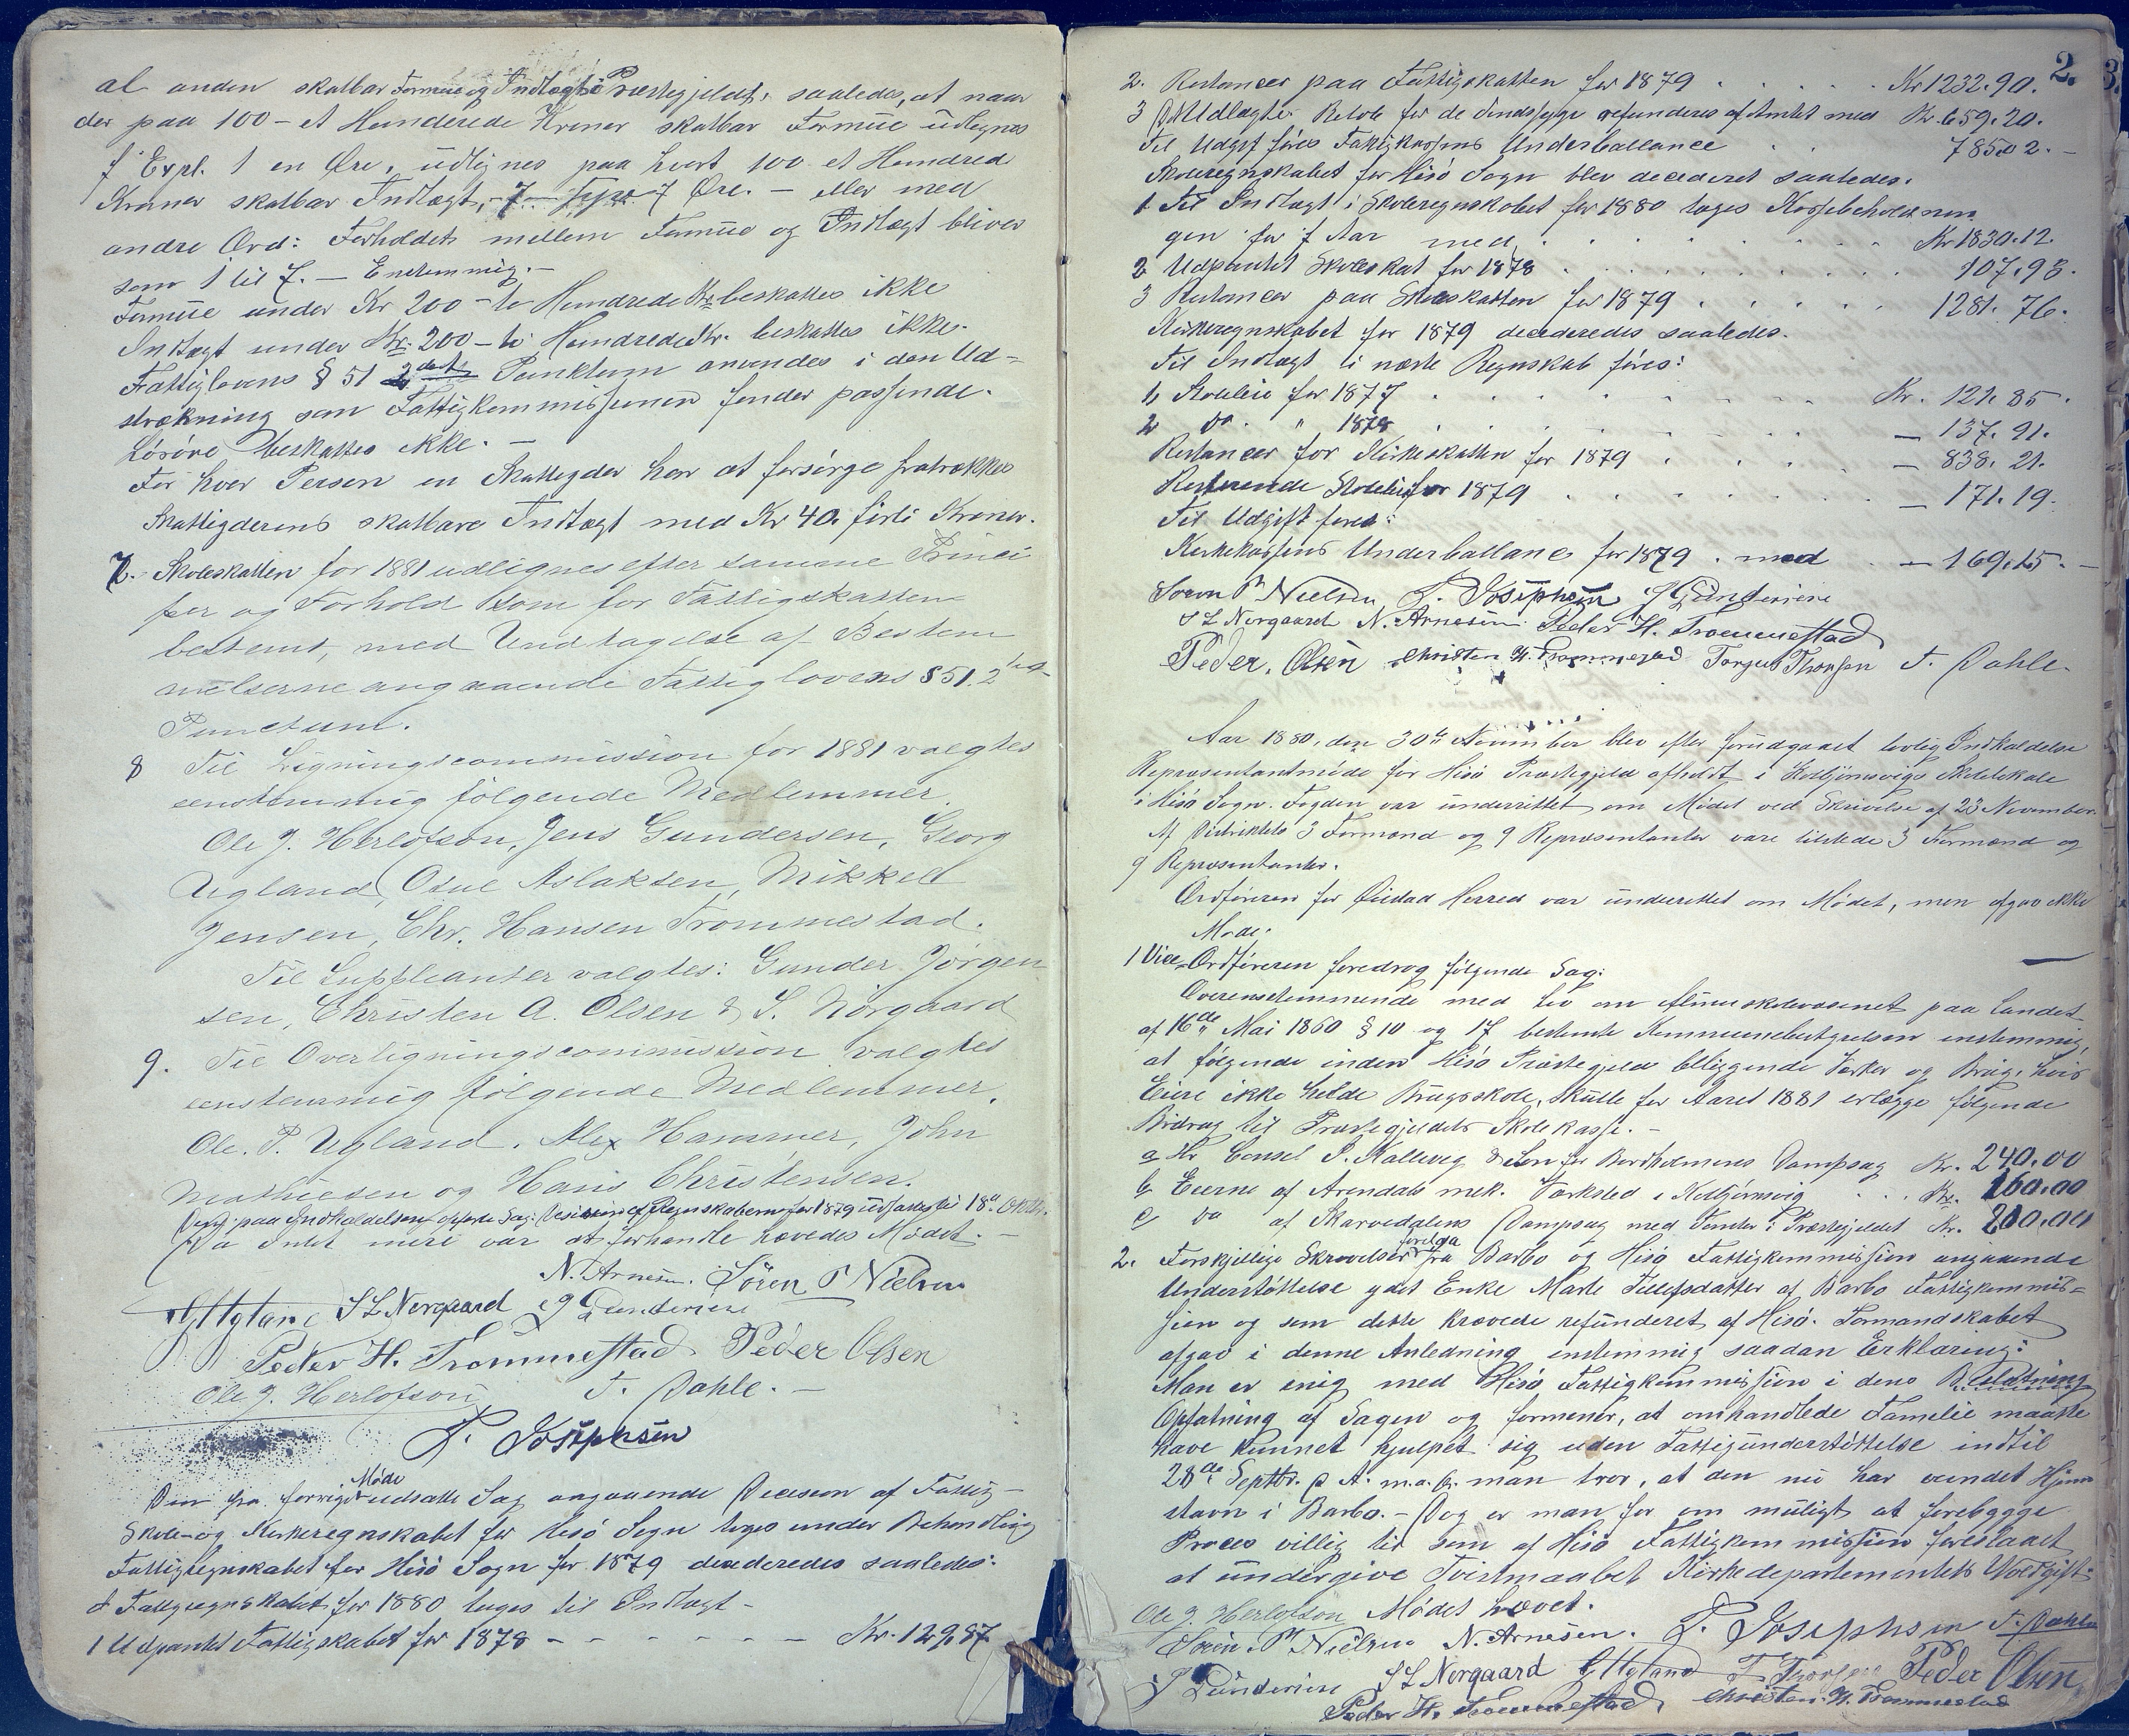 al anden skatbar Formue og Indtægt i Præstegjeldet, saaledes, at naar
der paa 100 – et Hunderede Kroner skatbar Formue udlignes
f Expl. 1 en Øre, udlignes paa hvert 100 et Hundred
Kroner skatbar Indtægt, 7 Øre. – eller med
andre Ord: Forholdet mellem Formue og Indtægt bliver
som 1 til 7. – Enstemmig. –
Formue under Kr 200 – to Hundrede Kr. beskattes ikke
Indtægt under Kr. 200 – to Hundrede Kr. beskattes ikke.
Fattiglovens § 51 2det Punktum anvendes i den Ud-
strækning som Fattigkommissionen finder passende.
Løsøre beskattes ikke. –
For hver Person en Skatteyder har at forsørge fratrækkes
Skatteyderens skatbare Indtægt med Kr 40. førti Kroner.
7. Skoleskatten for 1881 udlignes efter samme Princi
per og Forhold som for Fattigskatten
bestemt, med Undtagelse af Bestem
melserne angaaende Fattiglovens § 51. 2det
Punctum.
8 Til Ligningscommission for 1881 valgtes
eenstemmig følgende Medlemmer.
Ole J. Herlofson, Jens Gundersen, Georg
Ugland, Osul Aslaksen, Mikkel
Jensen, Chr. Hansen Trommestad.
Til Suppleanter valgtes: Gunder Jørgen
sen, Christen A. Olsen & S. Nørgaard
9. Til Overligningscommission valgtes
eenstemmig følgende Medlemmer.
Ole. P. Ugland. Alex Hammer, John
Mathiesen og Hans Christensen.
Den paa Indkaldelsen opførte Sag: Decision af Regnskaberne for 1879 udsattes til 18de Oktbr.
Da Intet mere var at forhandle hævedes Mødet. –
N. Arnesen. Søren P Nielsen
G Ugland S L Nørgaard J Gundersen
Peder H. Trommestad Peder Olsen
Ole J. Herlofson T. Dahle. –
T. Josephsen
Den fra forrige Møde udsatte Sag angaaende Decision af Fattig-
Skole- og Kirkeregnskabet for Hisø Sogn toges under Behandling
Fattigregnskabet for Hisø Sogn for 1879 decideredes saaledes:
I Fattigregnskabet for 1880 tages til Indtægt –
1 Udpantet Fattigskabet for 1878 – – – – – – Kr. 129.87
2.
2. Restancer paa Fattigskatten for 1879 . . . . . Kr 1232.90.
3 Udlagte Beløb for de Sindssyge refunderes af Amtet med Kr. 659.20.
Til Udgift føres Fattigkassens Underballance . . 785.02. –
Skoleregnskabet for Hisø Sogn blev decideret saaledes.
1 Til Indtægt i Skoleregnskabet for 1880 tages Kassebeholdnin
gen for f Aar med . . . . . . . . Kr 1830.12.
2 Udpantet Skoleskat for 1878 . . . . . . . 107.93.
3 Restancer paa Skoleskatten for 1879 . . . . . 1281.76.
Kirkeregnskabet for 1879 decideredes saaledes.
Til Indtægt i næste Regnskab føres:
1, Stoleleie for 1877 . . . . . . . Kr. 121.85.
2 do. " 1878 . . . . . . . – 137.91.
Restancer for Kirkeskatten for 1879 . . . . – 838.21.
Resterende Stoleleie for 1879 . . . . . . – 171.19.
Til Udgift føres:
Kirkekassens Underballance for 1879 . med . – 169.15. –
Søren P Nielsen T. Josephsen J Gundersen
S L Nørgaard N. Arnesen Peder H. Trommestad
Peder. Olsen Christen H. Trommestad Torgus Thorsen T. Dahle.
Aar 1880, den 30te November blev efter forudgaaet lovlig Indkaldelse
Repræsentantmøde for Hisø Præstegjeld afholdt i Kolbjørnsvigs Skolelokale
i Hisø Sogn. Fogden var underrettet om Mødet ved Skrivelse af 23 November.
Af Distriktets 3 Formænd og 9 Repræsentanter vare tilstede 3 Formænd og
9 Repræsentanter.
Ordføreren for Øiestad Herred var underrettet om Mødet, men afgav ikke
Møde.
1 Vice-Ordføreren foredrog følgende Sag:
Overensstemmende med Lov om Almueskolevæsenet paa Landet
af 16de Mai 1860 § 10 og 17 bestemte Kommunebestyrelsen enstemmig,
at følgende inden Hisø Præstegjeld beliggende Værker og Brug, hvis
Eiere ikke holde Brugsskole, skulle for Aaret 1881 erlægge følgende
Bidrag til Præstegjeldets Skolekasse. –
a Hr Consul S. Kallevig & Søn for Bordholmens Dampsag Kr. 240.00
b Eierne af Arendals mek. Værksted i Kolbjørnsvig . . . Kr. 160.00
c do af Skarvedalens Dampsag med Tomter i Præstegjeldet Kr. 200.00
2. Forskjellige Skrivelser forelaa fra Barbo og Hisø Fattigkommission angaaende
Understøttelse ydet Enke Marte Tellefsdatter af Barbo Fattigkommis=
sion og som dette krævede refunderet af Hisø. Formandskabet
afgav i denne Anledning enstemmig saadan Erklæring:
Man er enig med Hisø Fattigkommission i dens
Opfatning af Sagen og formener, at omhandlede Familie maatte
have kunnet hjulpet sig uden Fattigunderstøttelse indtil
28de Septbr. d. A. m. a. O. man tror, at den nu har vundet Hjem
stavn i Barbo. – Dog er man for om muligt at forebygge
Proces villig til som af Hisø Fattigkommission foreslaaet
at undergive Tvistmaalet Kirkedepartementets Voldgift.
Ole J. Herlofson Mødet hævet.
Søren P Nielsen N. Arnesen. T. Josephsen T. Dahle
J Gundersen S L Nørgaard G Ugland T Thorsen Peder Olsen
Peder H. Trommestad, Christen. H. Trommestad